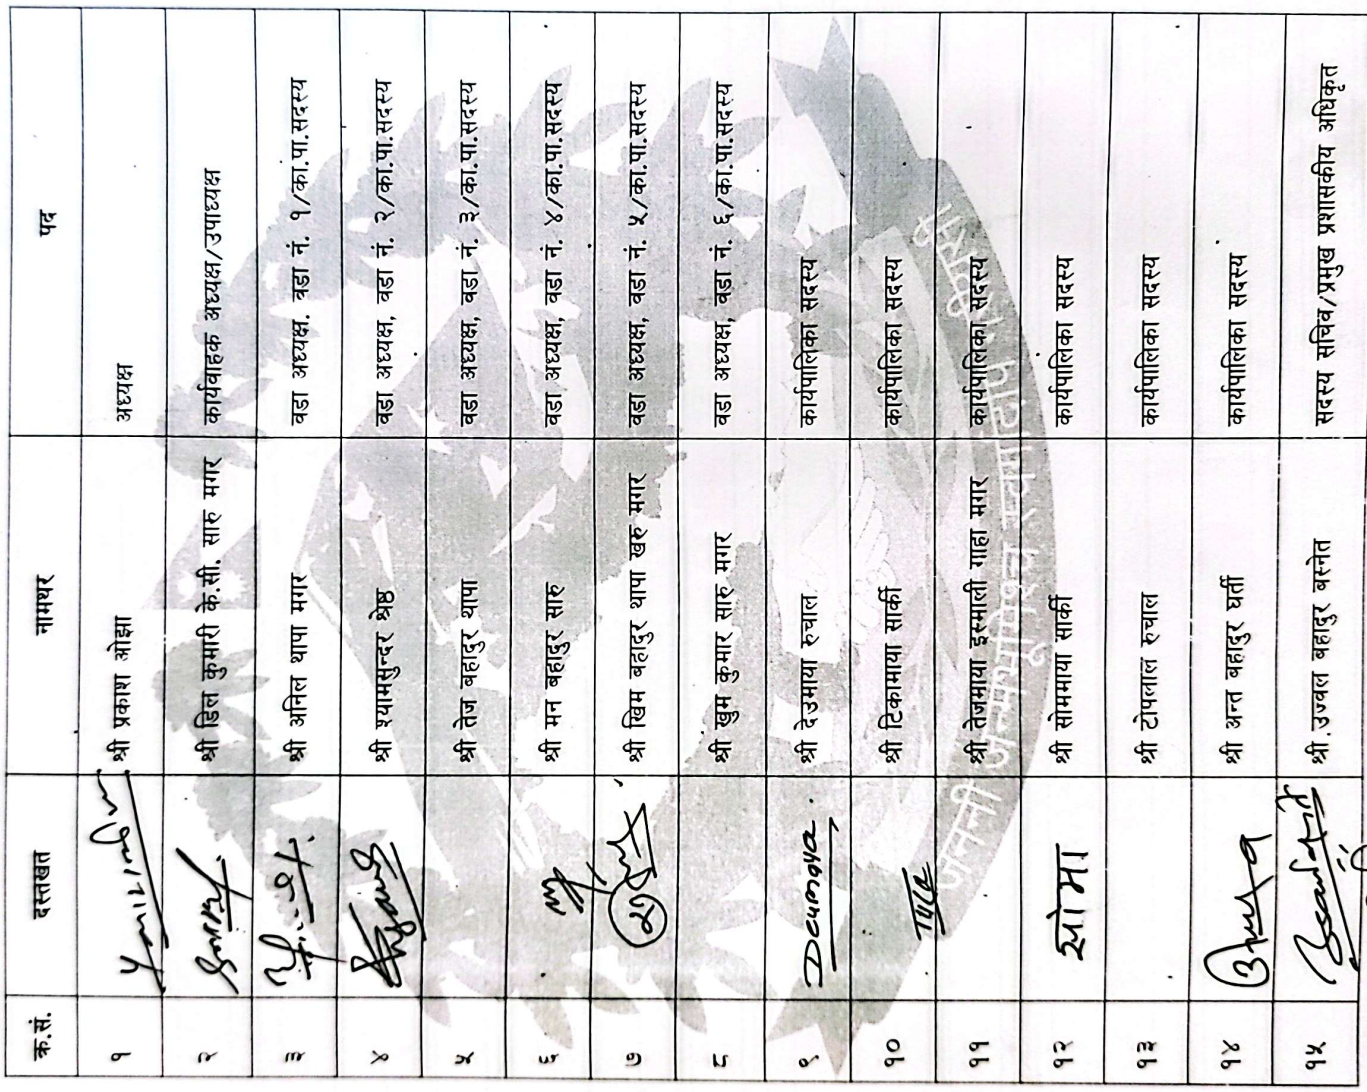 क्र.सं. दस्तखत नामथर पद
१ श्री प्रकाश ओझा अध्यक्ष
२ श्री डिल कुमारी के.सी. सारु मगर कार्यवाहक अध्यक्ष/उपाध्यक्ष
३ श्री अनिल थापा मगर वडा अध्यक्ष. वडा नं. १/का.पा.सदस्य
४ श्री श्यामसुन्दर श्रेष्ठ वडा अध्यक्ष, वडा नं. २/का.पा.सदस्य
५ श्री तेज बहादुर थापा वडा अध्यक्ष, वडा नं. ३/का.पा.सदस्य
६ श्री मन बहादुर सारु वडा अध्यक्ष, वडा नं. ४/का.पा.सदस्य
७ श्री खिम बहादुर थापा खरु मगर वडा अध्यक्ष, वडा नं. ५/का.पा.सदस्य
८ श्री खुम कुमार सारु मगर वडा अध्यक्ष, वडा नं. ६/का.पा.सदस्य
९ Deumaya श्री देउमाया रुचाल कार्यपालिका सदस्य
१० श्री टिकामाया सार्की कार्यपालिका सदस्य
११ श्री तेजमाया इस्माली गाहा मगर कार्यपालिका सदस्य
१२ सोमा श्री सोममाया सार्की कार्यपालिका सदस्य
१३ श्री टोपलाल रुचाल कार्यपालिका सदस्य
१४ श्री अन्त बहादुर घर्ती कार्यपालिका सदस्य
१५ श्री उज्वल बहादुर बस्नेत सदस्य सचिव/प्रमुख प्रशासकीय अधिकृत
जननी जन्मभूमिश्च स्वर्गादपि गरीयसी